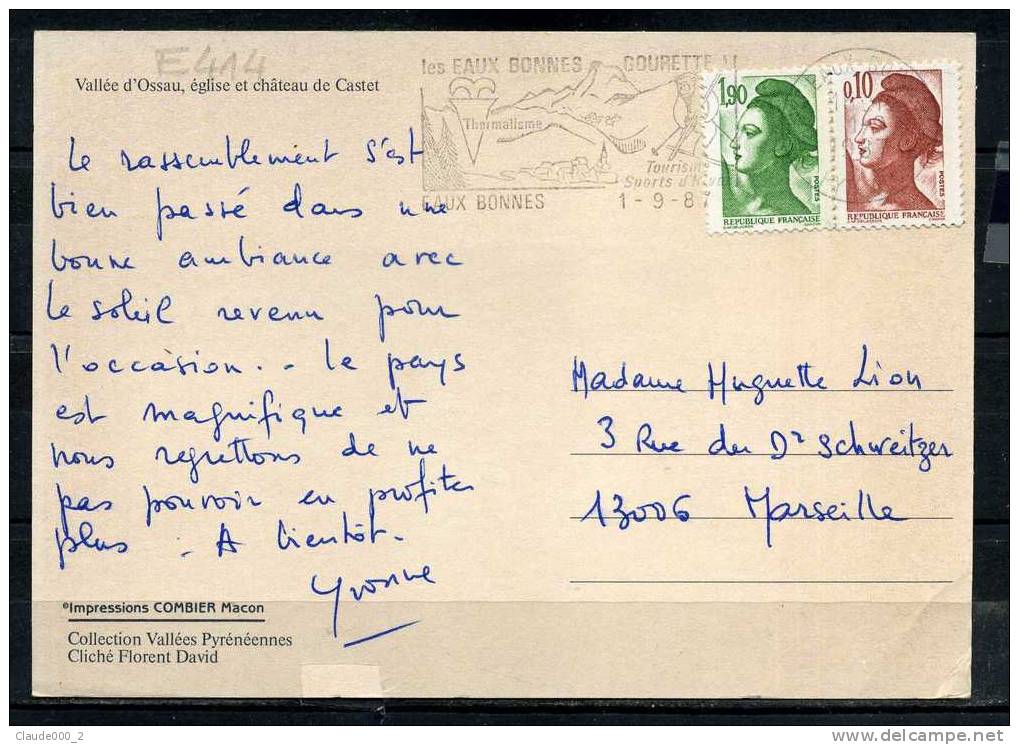 E414
Vallée d'Ossau, église et château de Castet
les EAUX BONNES GOURETTE
Thermalisme
Tourisme
Sports d'Hiver
EAUX BONNES 1-9-87
1,90
POSTES
REPUBLIQUE FRANÇAISE
0,10
POSTES
REPUBLIQUE FRANÇAISE
Le rassemblement s'est
bien passé dans une
bonne ambiance avec
le soleil revenu pour
l'occasion.. Le pays
est magnifique et
nous regrettons de ne
pas pouvoir en profiter
plus. A bientôt.
Yvonne
Madame Huguette Lion
3 Rue du Dr Schweitzer
13006 Marseille
©Impressions COMBIER Macon
Collection Vallées Pyrénéennes
Cliché Florent David
Claude000_2
delcampe.net